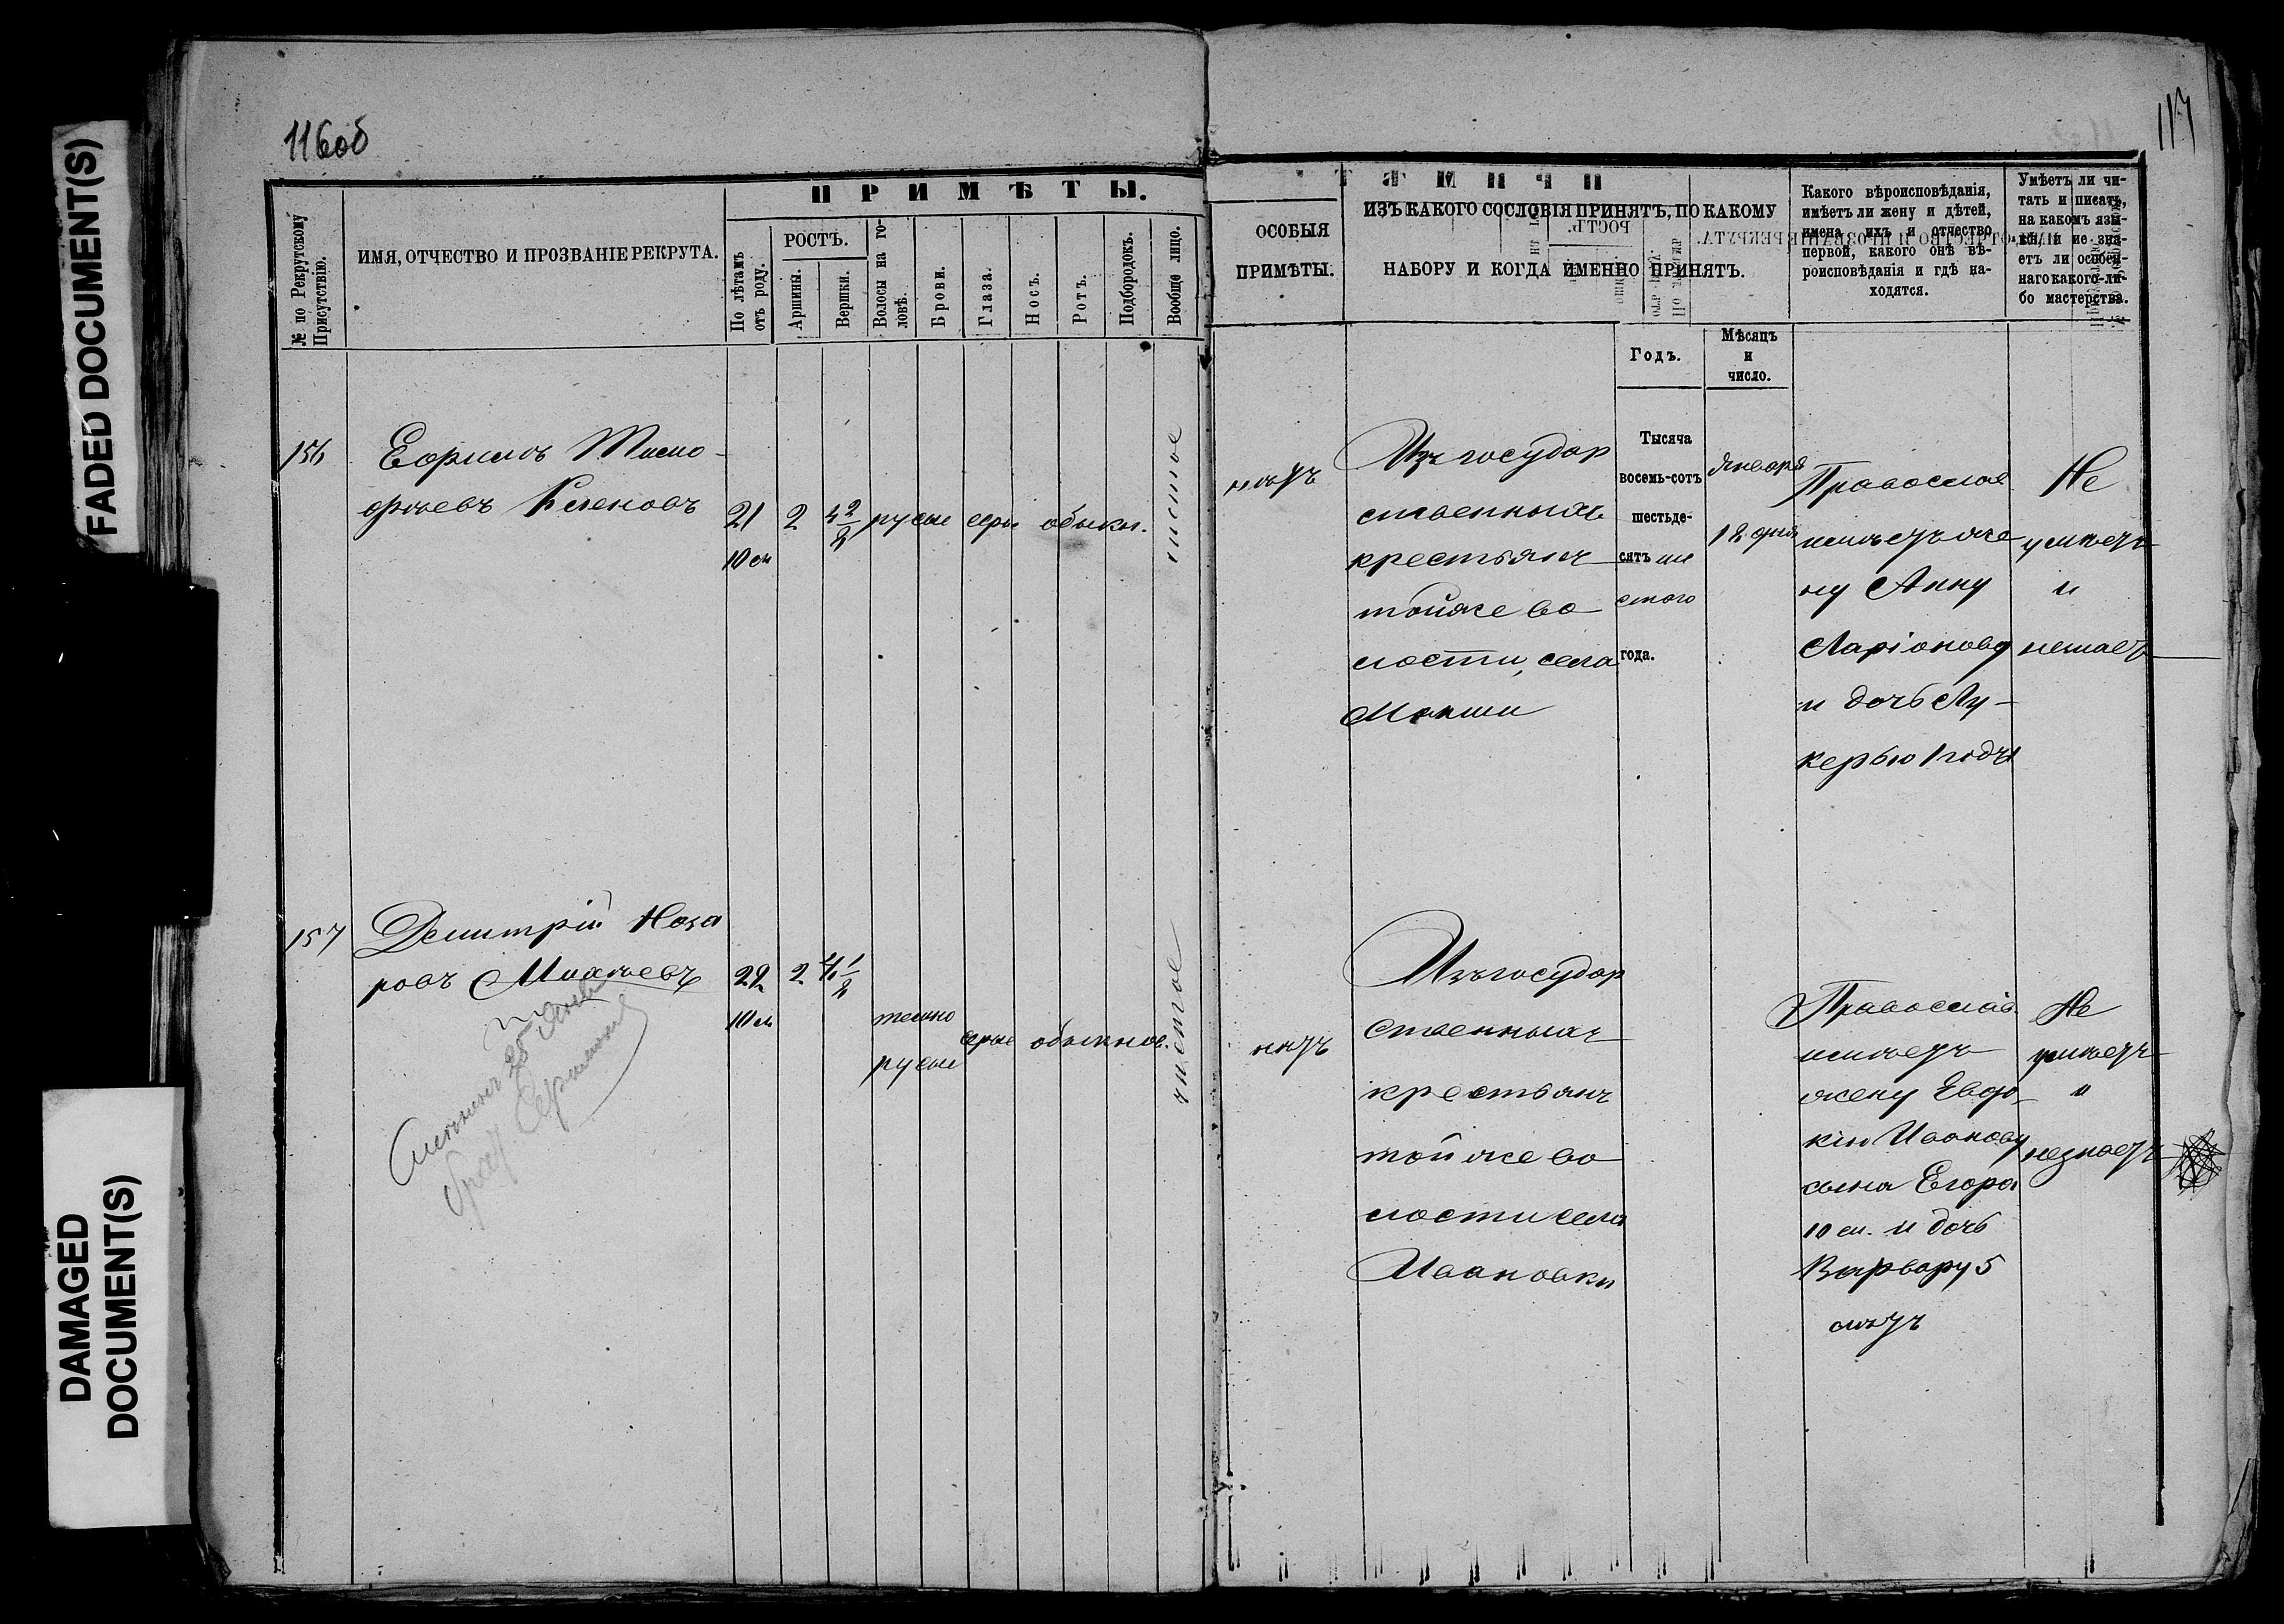 FADED DOCUMENT(S)
DAMAGED
DOCUMENT(S)
116 об
№ по Рекрутскому
Присутствію.
ИМЯ, ОТЧЕСТВО И ПРОЗВАНІЕ РЕКРУТА.
ПРИМѢТЫ.
По лѣтамъ
отъ роду.
РОСТЪ.
Аршины.
Вершки.
Волосы на го-
ловѣ.
Брови.
Глаза.
Носъ.
Ротъ.
Подбородокъ.
Вообще лицо.
156
Ефимъ Тимо-
фѣевъ
21
10 м
2
4 2/8
русые
серы
обыкн.
чистое
157
Дмитрій Наза
ровъ Михѣевъ
22
10 м
2
4 1/8
темно
русые
серые
обыкнов.
чистое
25
117
ОСОБЫЯ
ПРИМѢТЫ.
ИЗЪ КАКОГО СОСЛОВІЯ ПРИНЯТЪ, ПО КАКОМУ
НАБОРУ И КОГДА ИМЕННО ПРИНЯТЪ.
Годъ.
Мѣсяцъ
и
число.
Какого вѣроисповѣданія,
имѣетъ ли жену и дѣтей,
имена ихъ и отчество
первой, какого онѣ вѣ-
роисповѣданія и гдѣ на-
ходятся.
Умѣетъ ли чи-
тать и писать,
на какомъ язы-
кѣ, и не зна-
етъ ли особен-
наго какого-ли-
бо мастерства.
нѣтъ
Изъ государ
ственныхъ
крестьянъ
тойже во
лости, села
Мокши
Тысяча
восемь-сотъ
шестьде-
сятъ ше
стого
года.
Января
18 дня
Православ
имѣетъ же
ну Анну
Ларіонову
и дочь Лу-
керью 1 годъ
Не
умѣетъ
и
незнаетъ
нѣтъ
Изъ государ
ственныхъ
крестьянъ
тойже во
лости села
Ивановки
Православ.
имѣетъ
жену Евдо-
кію Иванову
сына Егора
10 м. и дочь
Варвару 5
лѣтъ
Не
умѣетъ
и
незнаетъ